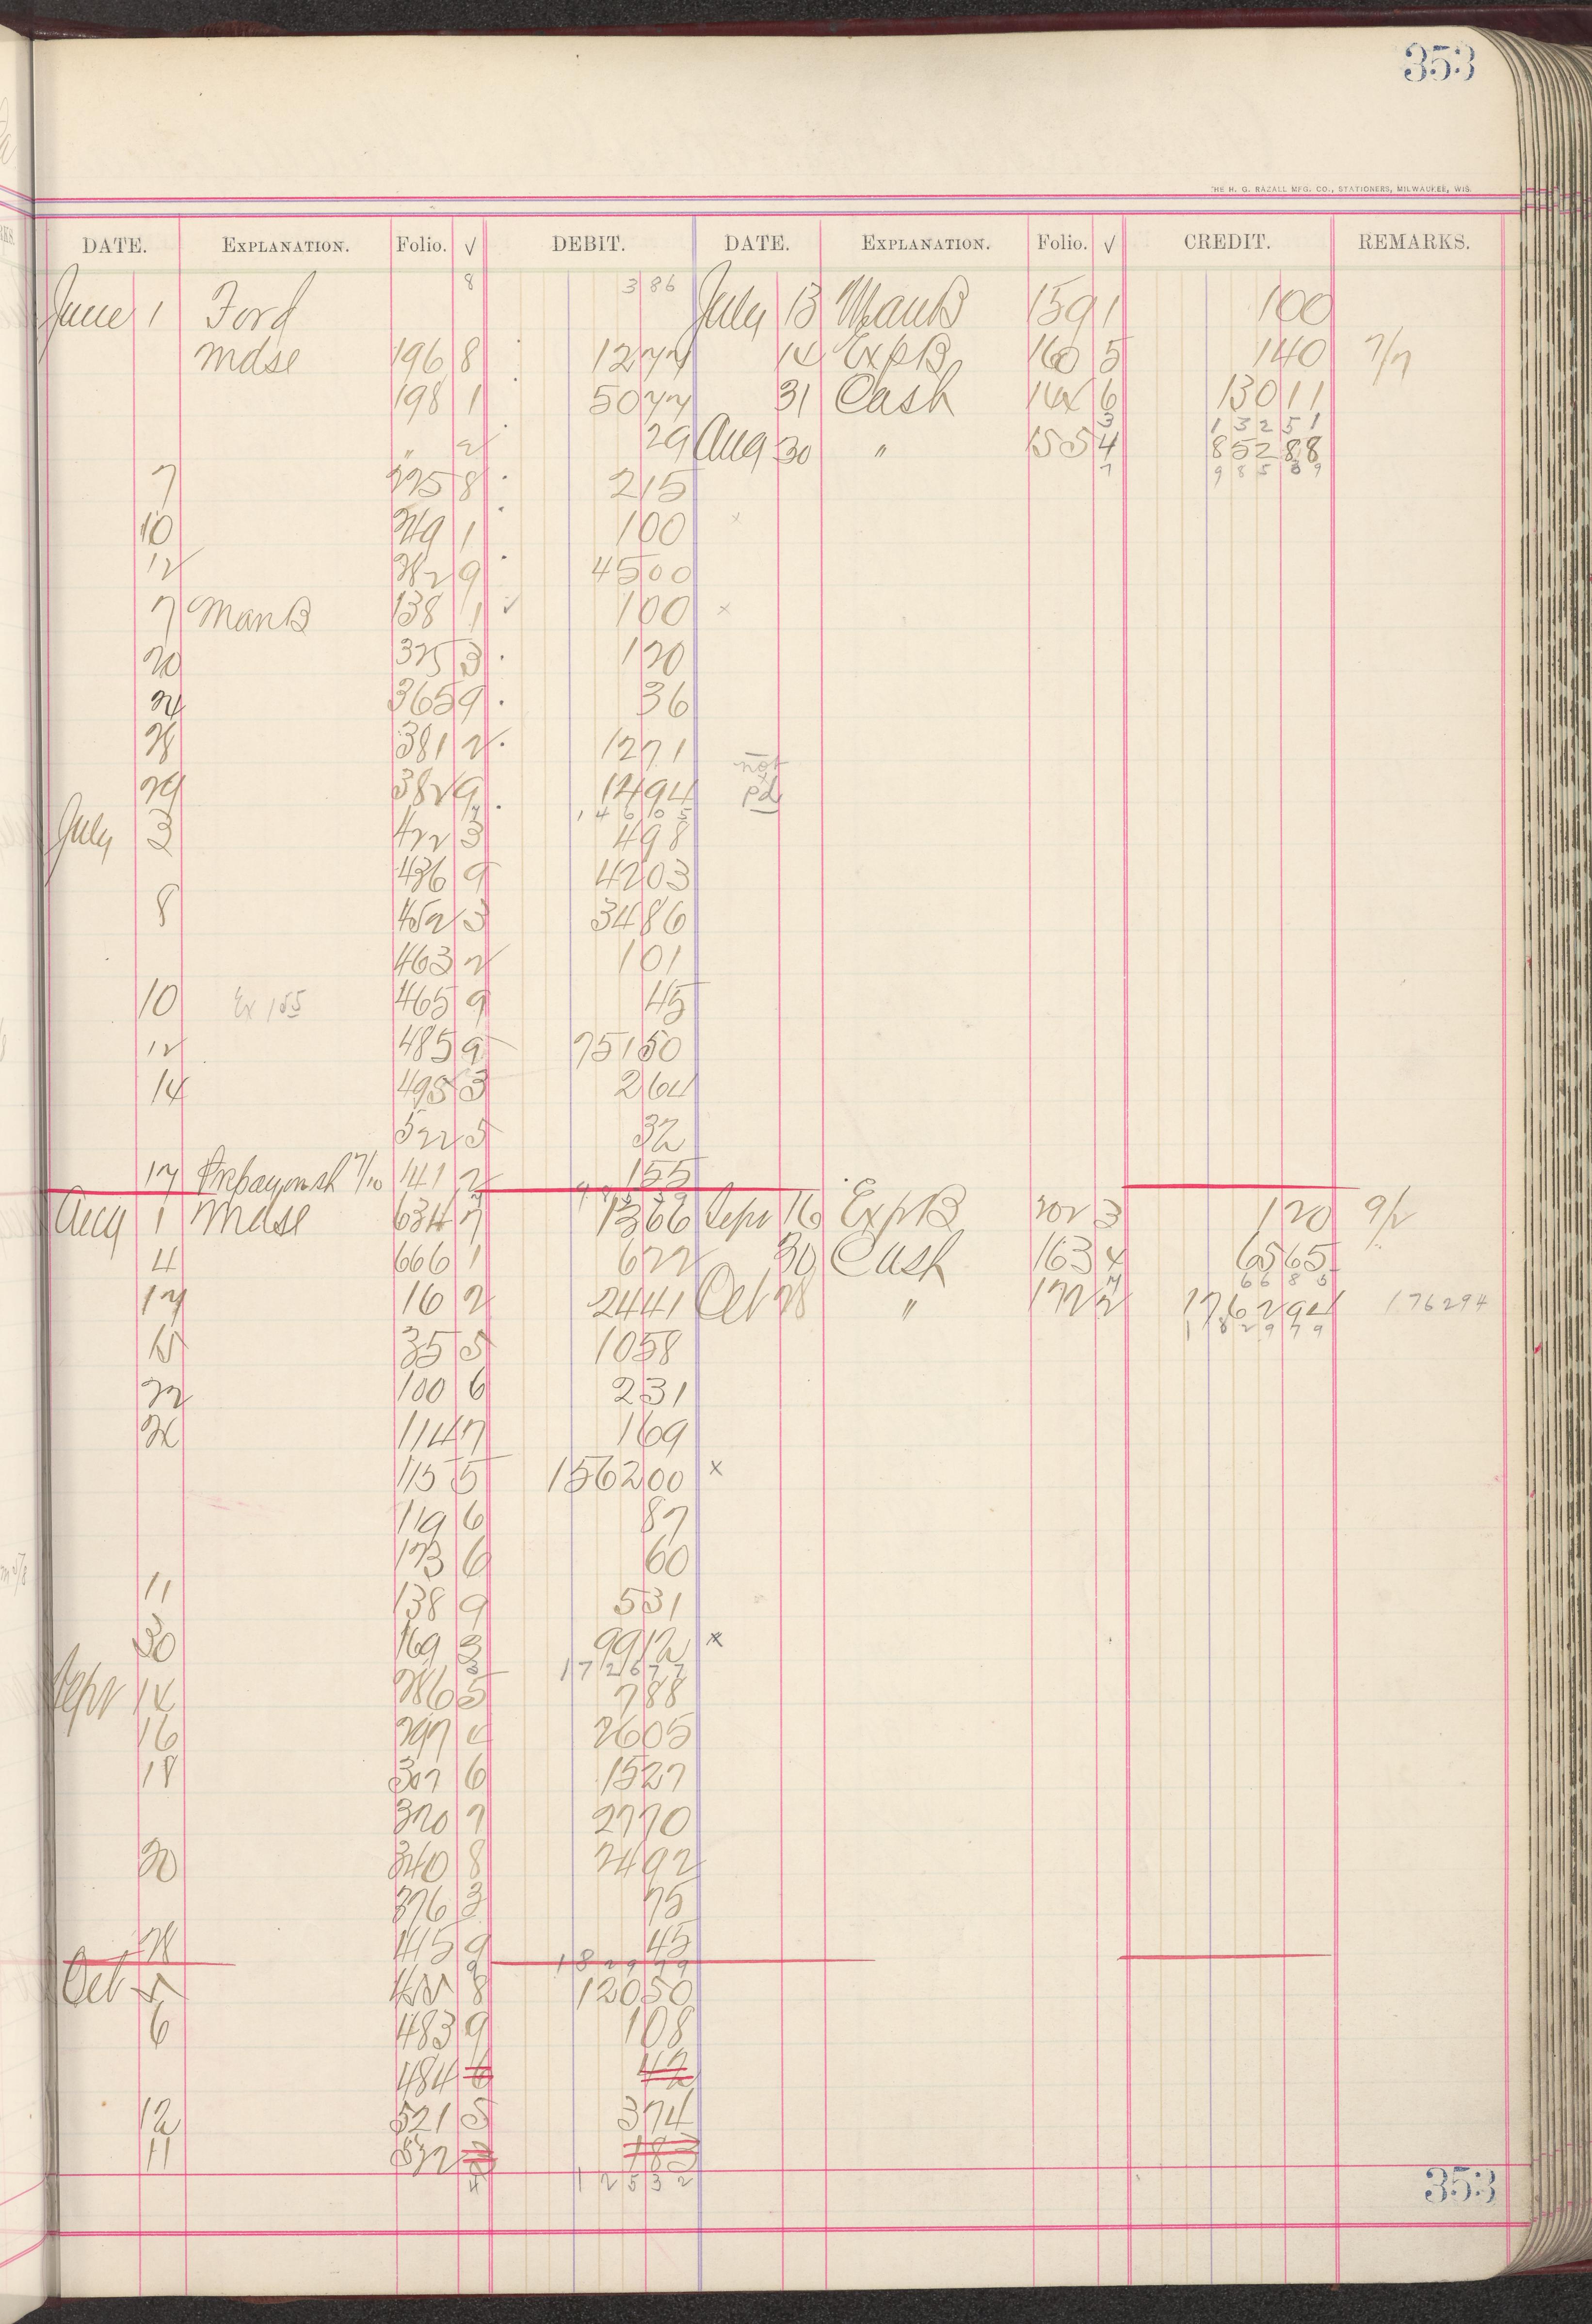 353
THE H. G. RAZALL MFG. CO., STATIONERS, MILWAUKEE, WIS.
DATE. EXPLANATION. Folio. √ DEBIT. DATE. EXPLANATION. Folio. √ CREDIT. REMARKS.
8 3 86
June 1 Ford July 13 ManB 159 1 1 00
Mdse 196 8 12 77 14 ExpB 160 5 1 40 7/7
198 1 50 77 31 Cash 6 130 11
3 132 51
" 2 29 Aug 30 " 155 4 852 88
7 985 39
7 225 8 2 15
10 249 1 1 00 x
12 282 9 45 00
7 ManB 138 1 ✓ 1 00 x
20 325 3 1 20
24 365 9 36
28 381 2 12 71 not
29 382 9 12 94 pd
146 05
July 3 422 3 4 98
436 9 42 03
8 452 3 34 86
463 2 1 01
10 Ex 155 465 9 45
12 485 9 751 50
14 495 3 2 64
522 5 32
17 141 2 1 55
Aug 1 Mdse 634 7 13 66 Sept 16 ExpB 202 3 1 20 9/2
4 666 1 6 22 30 Cash 163 4 65 65
66 85
17 16 2 24 41 Oct 28 " 172 2 1762 94 176294
1829 79
15 35 5 10 58
22 100 6 2 31
26 114 7 1 69
115 5 1562 00 x
119 6 87
123 6 60
11 138 9 5 31
30 169 3 99 12 x
1726 77
Sept 14 286 5 7 88
16 297 26 05
18 307 6 15 27
320 7 27 70
20 340 8 24 92
376 3 75
28 445 9 45
1829 79
Oct 5 8 120 50
6 483 9 1 08
484 6 42
12 521 5 3 74
11 532
4 125 32
353